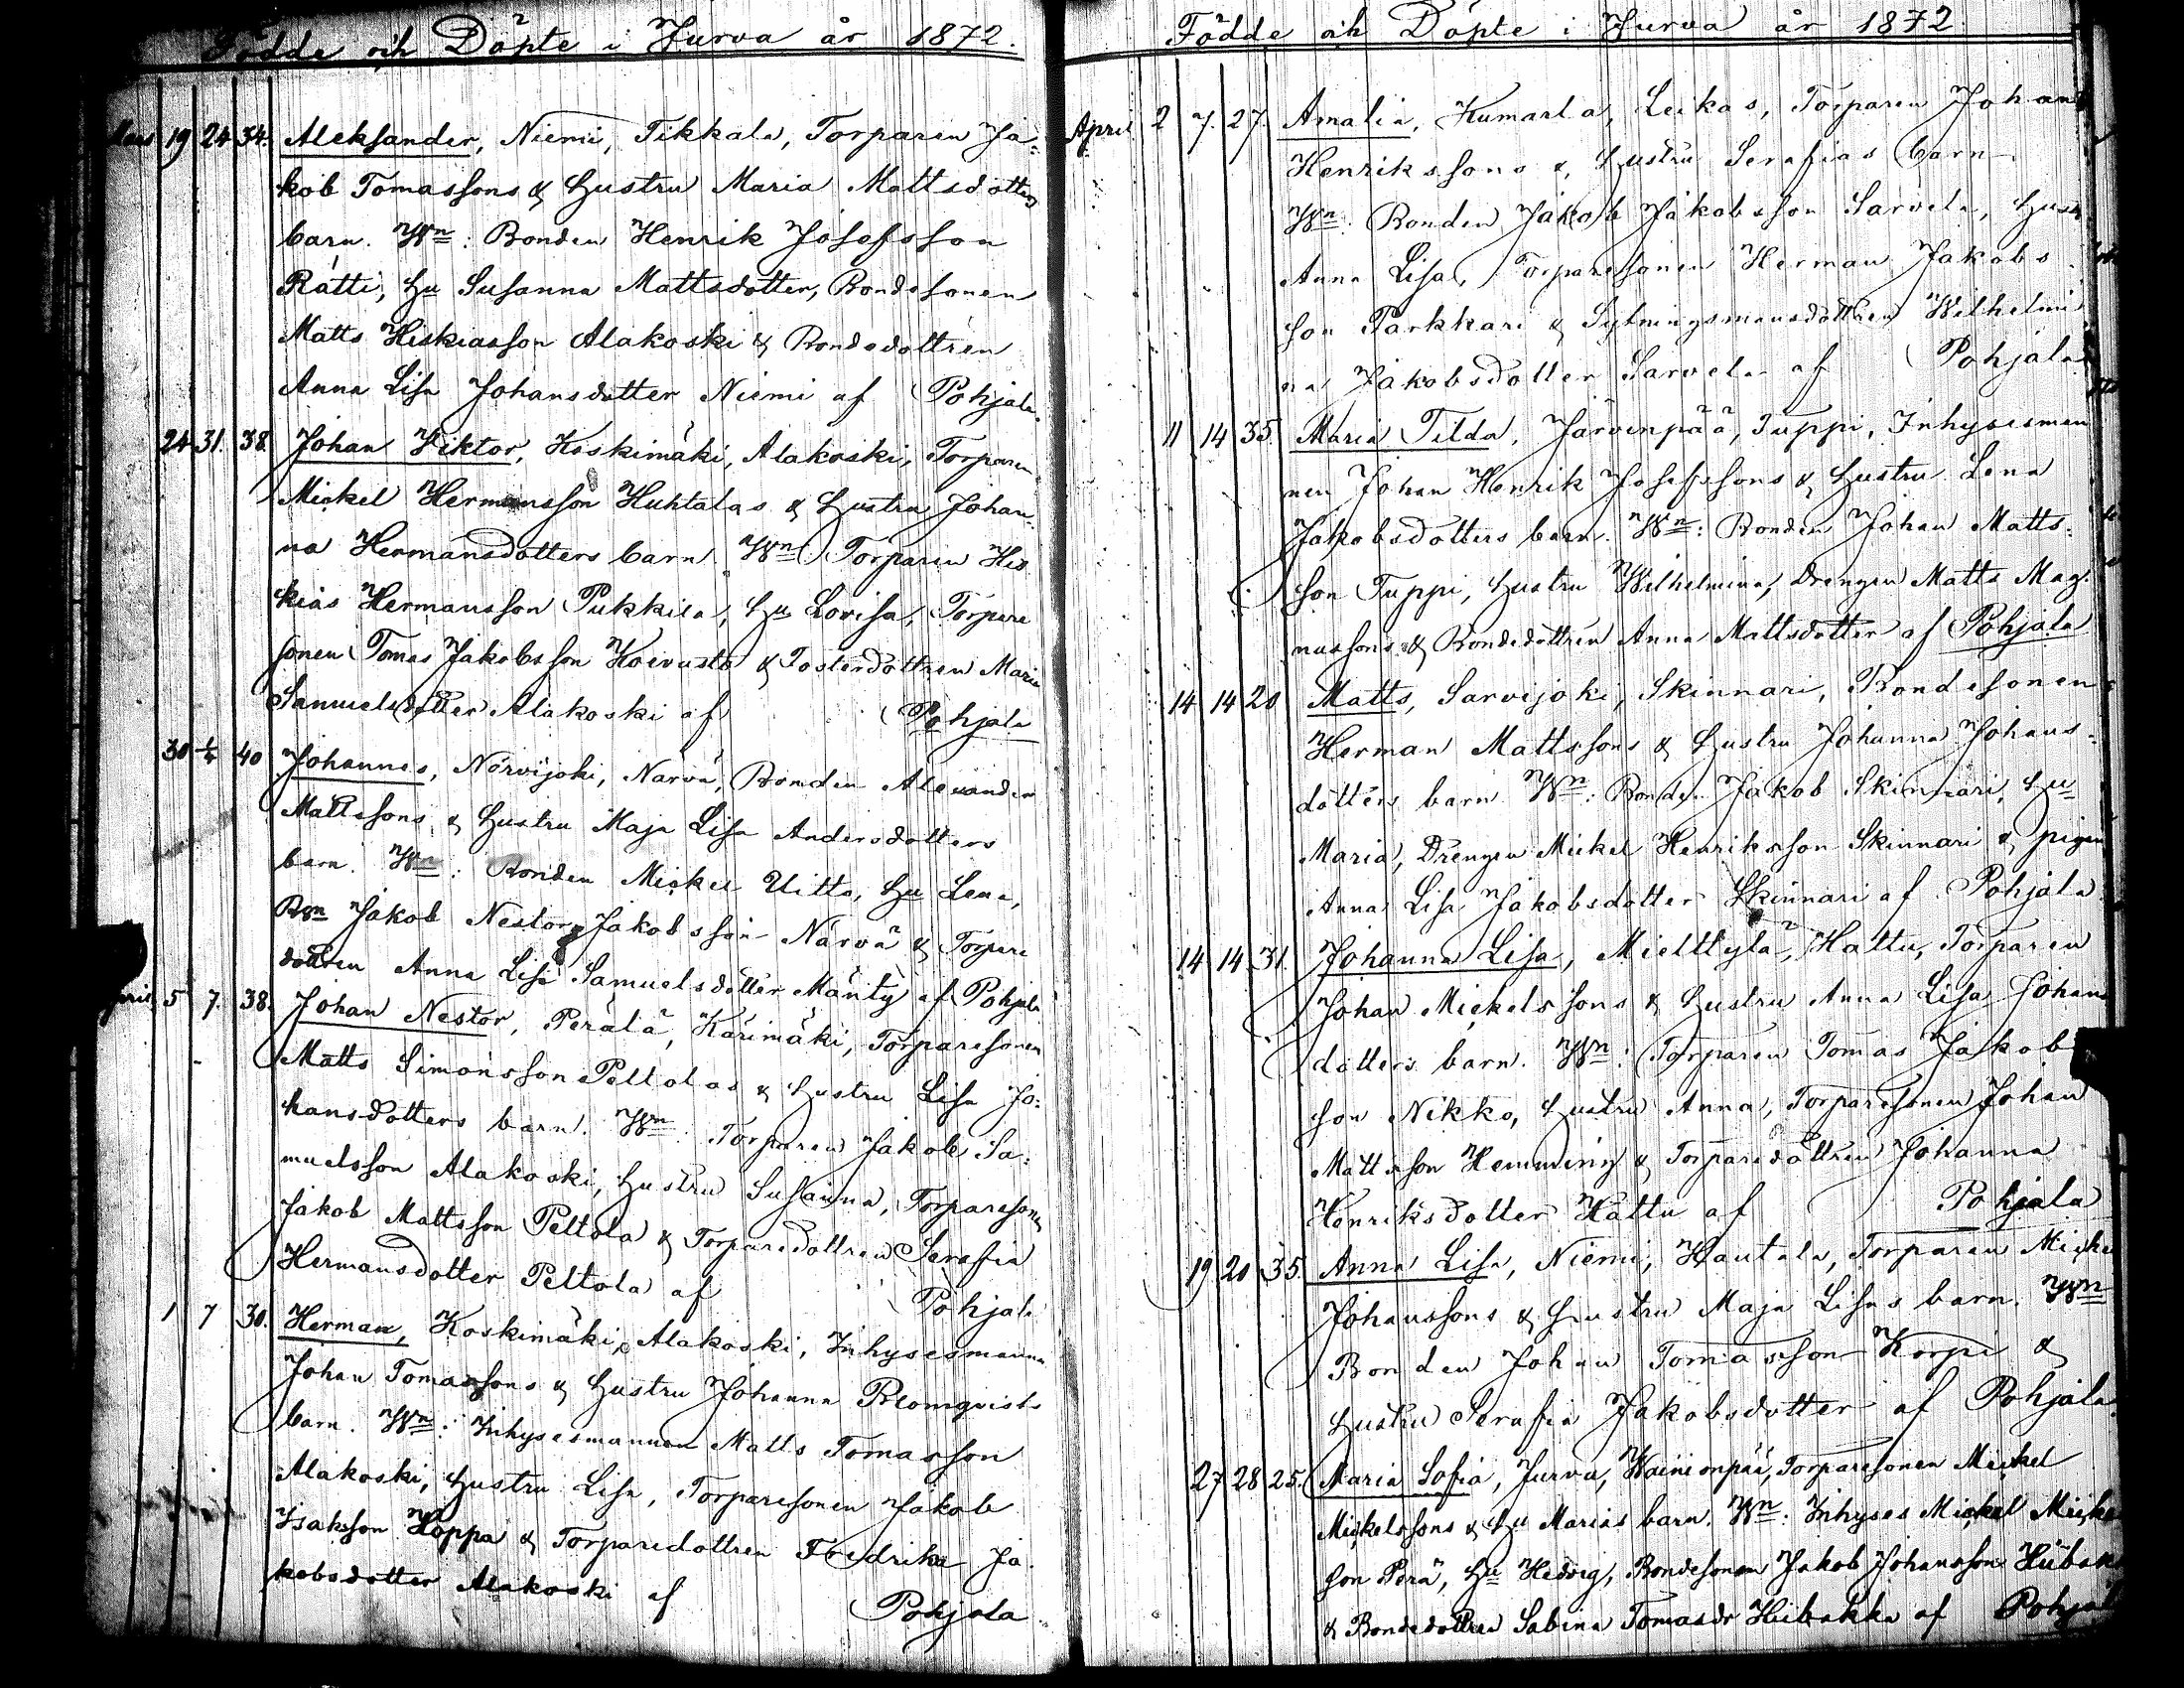 Födde och Döpte i Jurva år 1872.
19 24 34. Aleksander, Niemi, Tikkala, Torparen Ja-
kob Tomassons & Hustru Maria Mattsdotters
barn. Wn: Bonden Henrik Josefsson
Rätti, Hu Susanna Mattsdotter, Bondesonen
Matts Hiskiasson Alakoski & Bondedottren
Anna Lisa Johansdotter Niemi af Pohjala
24 31. 38. Johan Viktor, Koskimäki, Alakoski, Torparen
Mickel Hermansson Huhtalas & Hustru Johan-
na Hermansdotters barn. Wn Torparen His
kias Hermansson Pukkila, Hu Lovisa, Torpare
sonen Tomas Jakobsson Koivusto & Fosterdottren Maria
Samuelsdotter Alakoski af Pohjala
30 1/4 40 Johannes, Närvijoki, Närvä, Bonden Alexander
Mattssons & Hustru Maja Lisa Andersdotters
barn. Wn: Bonden Mickel Uitto, Hu Lena,
Bsn Jakob Nestor Jakobsson Närvä & Torpare
dottren Anna Lisa Samuelsdotter Mänty af Pohjala
5 7. 38. Johan Nestor, Perälä, Karimäki, Torparesonen
Matts Simonsson Peltolas & Hustru Lisa Jo-
hansdotters barn. Wn: Torparen Jakob Sa-
muelsson Alakoski, Hustru Susanna, Torparesonen
Jakob Mattsson Peltola & Torparedottren Serafia
Hermansdotter Peltola af Pohjala
1 7 30. Herman, Koskimäki, Alakoski, Inhysesmannen
Johan Tomassons & Hustru Johanna Blomqvists
barn. Wn: Inhysesmannen Matts Tomasson
Alakoski, Hustru Lisa, Torparesonen Jakob
Isaksson Hoppa & Torparedottren Fredrika Ja-
kobsdotter Alakoski af Pohjala
Födde och Döpte i Jurva år 1872
April 2 7. 27. Amalia, Kumarla, Leikas, Torparen Johan
Henrikssons & Hustru Serafias barn
Wn: Bonden Jakob Jakobsson Sarvela, Hustr
Anna Lisa, Torparesonen Herman Jakobs
son Parkkari & Sytningsmansdottren Wilhelmi
na Jakobsdotter Sarvela af Pohjala
11 14 35. Maria Tilda, Järvinpää, Tuppi, Inhysesman
nen Johan Henrik Josefssons & Hustru Lena
Jakobsdotters barn. Wn: Bonden Johan Matts-
son Tuppi, Hustru Wilhelmina, Drengen Matts Mag-
nussons & Bondedottren Anna Mattsdotter af Pohjala
14 14 20 Matts, Sarvijoki, Skinnari, Bondesonen
Herman Mattssons & Hustru Johanna Johans-
dotters barn Wn: Bonden Jakob Skinnari, Hu
Maria, Drengen Mickel Henriksson Skinnari & pigan
Anna Lisa Jakobsdotter Skinnari af Pohjala
14 14 31. Johanna Lisa, Miettylä, Hattu, Torparen
Johan Mickelssons & Hustru Anna Lisa Johans
dotters barn. Wn: Torparen Tomas Jakobs
son Nikko, Hustru Anna, Torparesonen Johan
Mattsson Hemming & Torparedottren Johanna
Henriksdotter Hattu af Pohjala
19 20 35. Anna Lisa, Niemi, Hautala, Torparen Mickel
Johanssons & Hustru Maja Lisas barn. Wn
Bonden Johan Tomasson Korpi &
Hustru Serafia Jakobsdotter af Pohjala
27 28 25. Maria Sofia, Jurva, Wainionpää, Torparesonen Mickel
Mickelssons & Hu Marias barn. Wn: Inhyses Mickel Mickels
son Perä, Hu Hedvig, Bondesonen Jakob Johansson Hiibakka
& Bondedottren Sabina Tomasdr Hiibakka af Pohjala